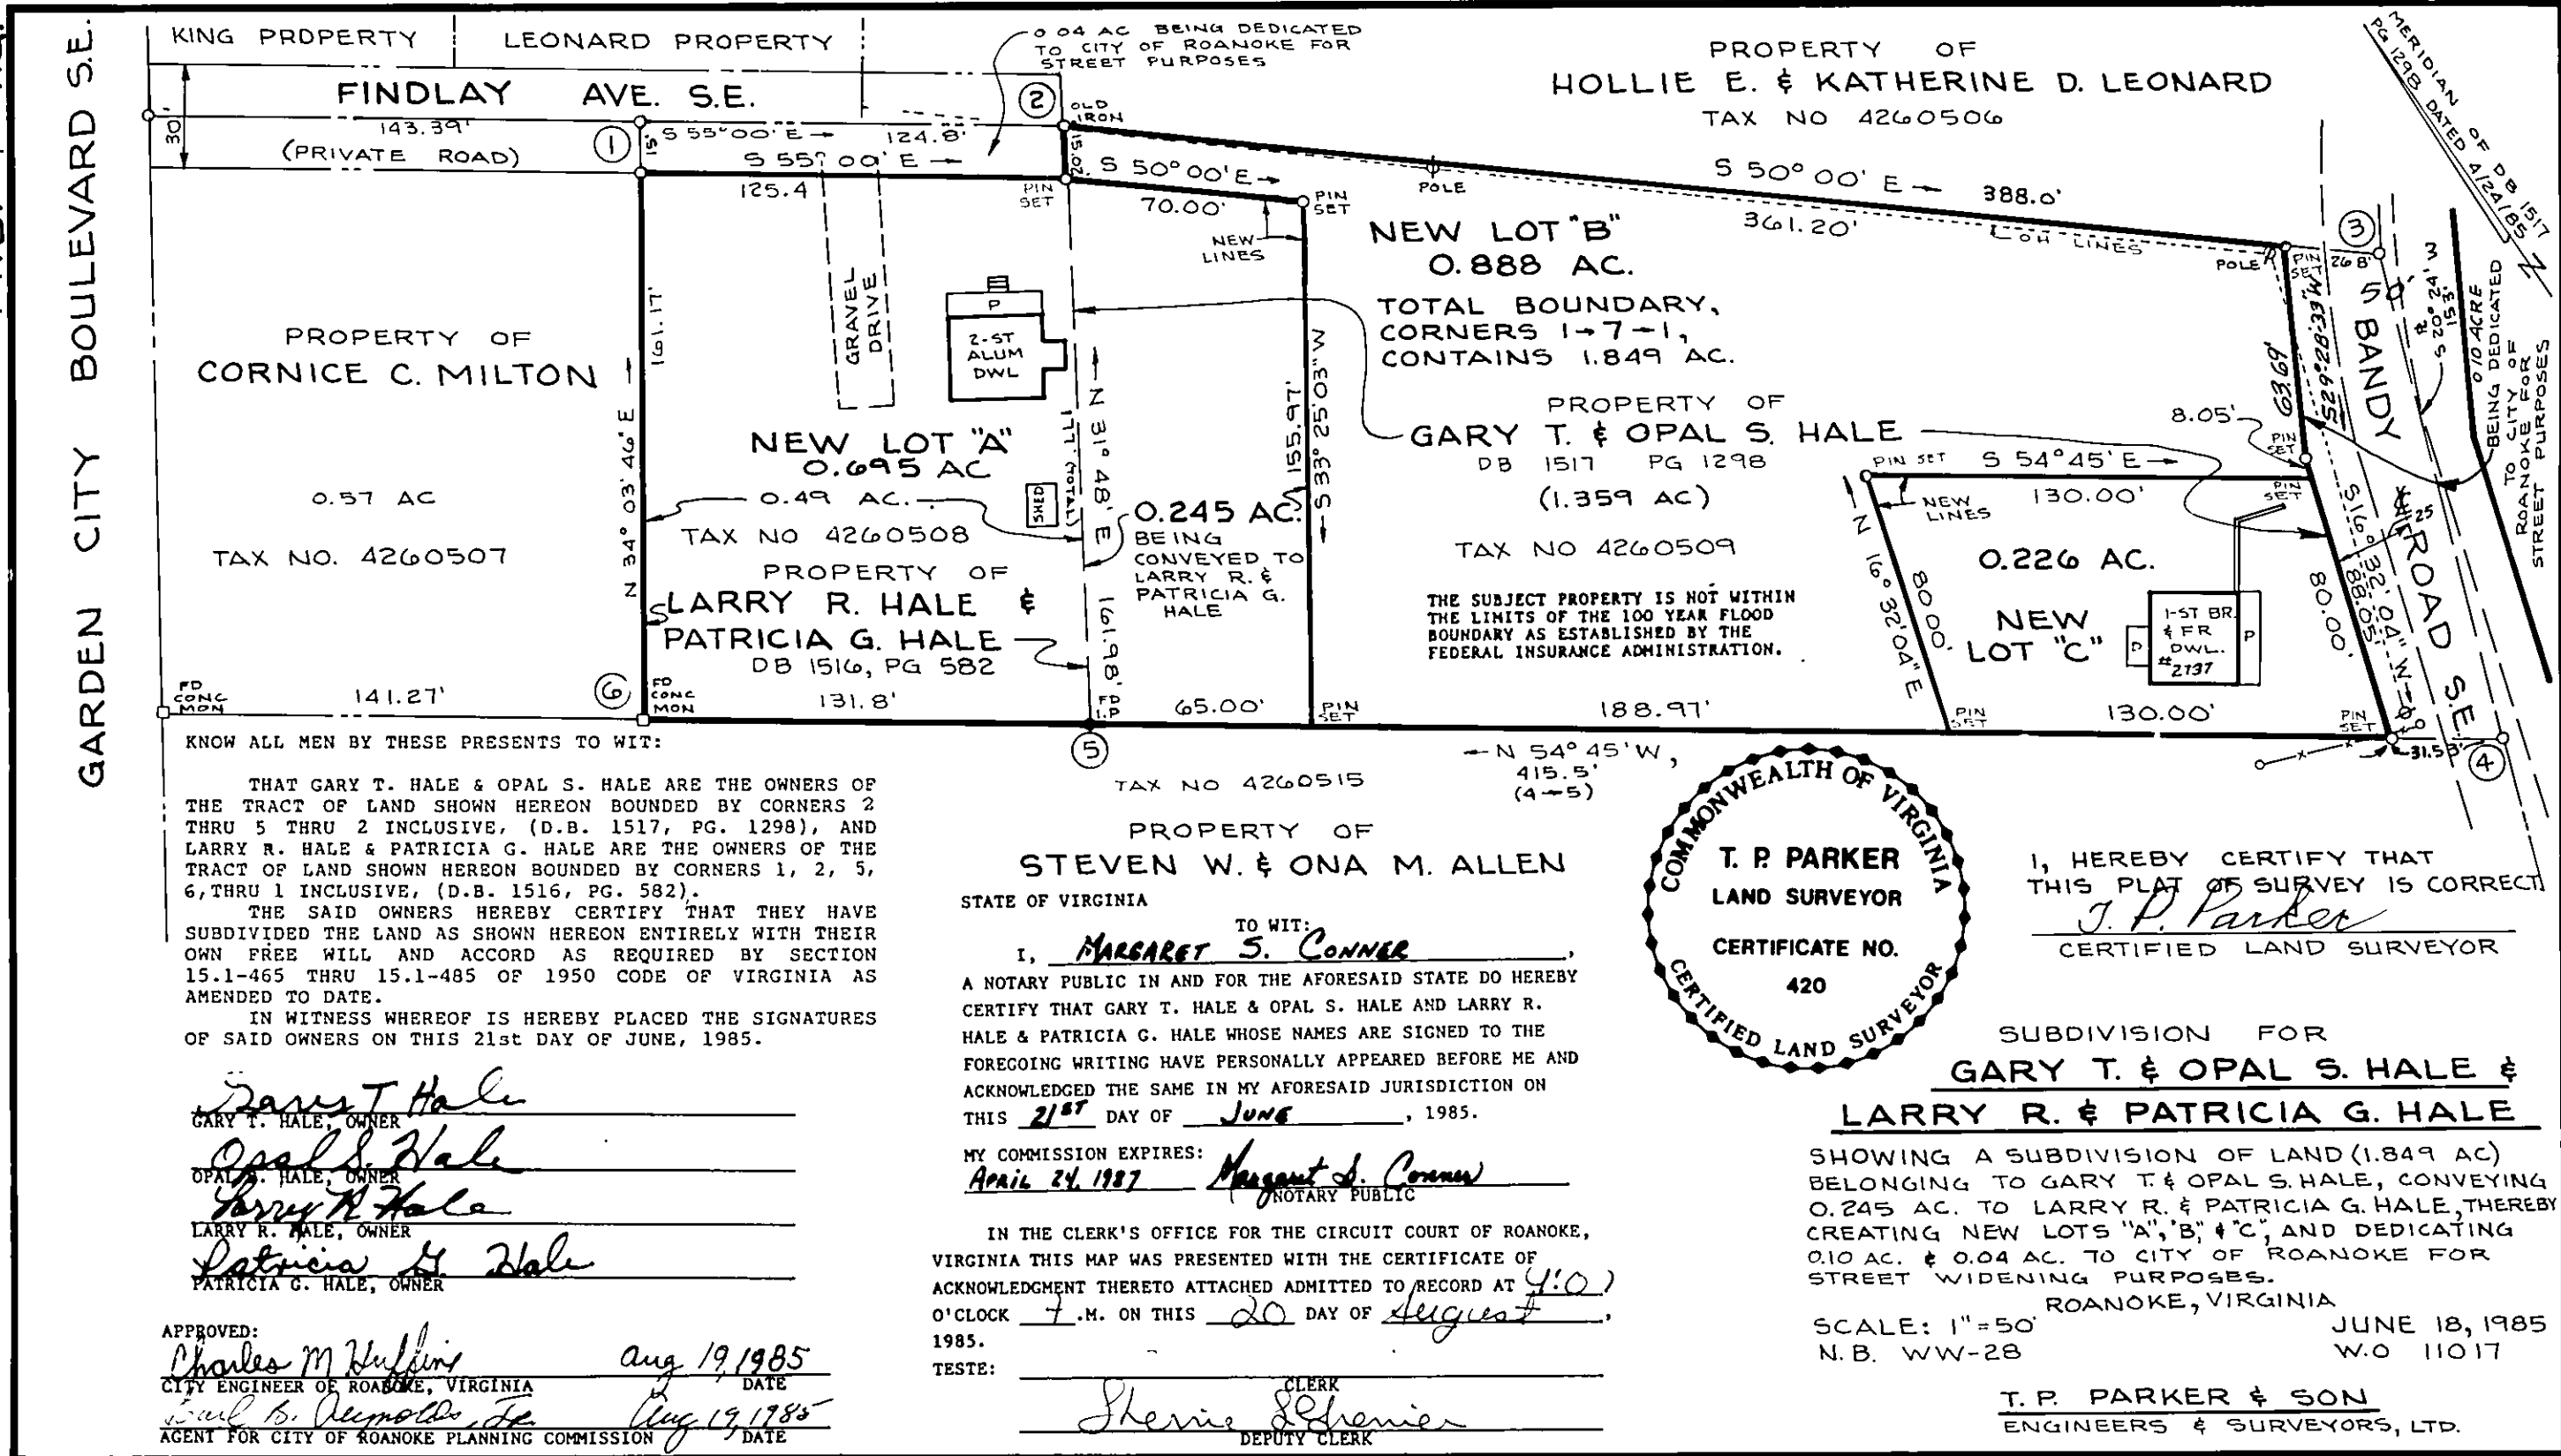 GARDEN CITY BOULEVARD S.E.
KING PROPERTY
LEONARD PROPERTY
0.04 AC BEING DEDICATED
TO CITY OF ROANOKE FOR
STREET PURPOSES
PROPERTY OF
HOLLIE E. & KATHERINE D. LEONARD
TAX NO 4260506
MERIDIAN OF DB 1517
PG 1298 DATED 4/24/85
30'
FINDLAY AVE. S.E.
143.39'
(PRIVATE ROAD)
1
15'
S 55°00' E → 124.8'
S 55° 00' E →
125.4
2
OLD
IRON
15.02'
PIN
SET
S 50°00' E →
70.00'
PIN
SET
NEW
LINES
POLE
S 50° 00' E → 388.0'
361.20'
OH LINES
POLE
PIN
SET
26.8'
3
50'
S 20° 24' 3 W
15.3'
0.10 ACRE
BEING DEDICATED
TO CITY OF
ROANOKE FOR
STREET PURPOSES
BANDY ROAD S.E.
63.69'
S29°28'33"W
8.05'
PIN
SET
25
S16° 32' 04" W
88.05'
80.00'
PROPERTY OF
CORNICE C. MILTON
0.57 AC
TAX NO. 4260507
N 34° 03' 46" E
161.17'
GRAVEL
DRIVE
P
2-ST
ALUM
DWL
NEW LOT "A"
0.695 AC
0.49 AC.
SHED
TAX NO 4260508
PROPERTY OF
LARRY R. HALE &
PATRICIA G. HALE
DB 1516, PG 582
N 31° 48' E
177. (TOTAL)
161.98'
0.245 AC.
BEING
CONVEYED TO
LARRY R. &
PATRICIA G.
HALE
155.97'
S 33° 25'03" W
NEW LOT "B"
0.888 AC.
TOTAL BOUNDARY,
CORNERS 1→7→1,
CONTAINS 1.849 AC.
PROPERTY OF
GARY T. & OPAL S. HALE
DB 1517 PG 1298
(1.359 AC)
TAX NO 4260509
THE SUBJECT PROPERTY IS NOT WITHIN
THE LIMITS OF THE 100 YEAR FLOOD
BOUNDARY AS ESTABLISHED BY THE
FEDERAL INSURANCE ADMINISTRATION.
PIN SET
S 54°45' E →
130.00'
NEW
LINES
PIN
SET
N 16° 32'04" E
80.00'
0.226 AC.
NEW
LOT "C"
P
1-ST BR.
& FR
DWL.
#2737
P
FD
CONC
MON
141.27'
6
FD
CONC
MON
131.8'
FD
I.P
5
65.00'
PIN
SET
188.97'
PIN
SET
130.00'
PIN
SET
31.53'
4
← N 54° 45' W,
415.5'
(4→5)
TAX NO 4260515
PROPERTY OF
STEVEN W. & ONA M. ALLEN
KNOW ALL MEN BY THESE PRESENTS TO WIT:
THAT GARY T. HALE & OPAL S. HALE ARE THE OWNERS OF
THE TRACT OF LAND SHOWN HEREON BOUNDED BY CORNERS 2
THRU 5 THRU 2 INCLUSIVE, (D.B. 1517, PG. 1298), AND
LARRY R. HALE & PATRICIA G. HALE ARE THE OWNERS OF THE
TRACT OF LAND SHOWN HEREON BOUNDED BY CORNERS 1, 2, 5,
6,THRU 1 INCLUSIVE, (D.B. 1516, PG. 582).
THE SAID OWNERS HEREBY CERTIFY THAT THEY HAVE
SUBDIVIDED THE LAND AS SHOWN HEREON ENTIRELY WITH THEIR
OWN FREE WILL AND ACCORD AS REQUIRED BY SECTION
15.1-465 THRU 15.1-485 OF 1950 CODE OF VIRGINIA AS
AMENDED TO DATE.
IN WITNESS WHEREOF IS HEREBY PLACED THE SIGNATURES
OF SAID OWNERS ON THIS 21st DAY OF JUNE, 1985.
Gary T Hale
GARY T. HALE, OWNER
Opal S. Hale
OPAL S. HALE, OWNER
Larry R Hale
LARRY R. HALE, OWNER
Patricia G. Hale
PATRICIA G. HALE, OWNER
APPROVED:
Charles M Huffine Aug 19, 1985
CITY ENGINEER OF ROANOKE, VIRGINIA DATE
Earl B. Reynolds, Jr. Aug 19, 1985
AGENT FOR CITY OF ROANOKE PLANNING COMMISSION DATE
STATE OF VIRGINIA
TO WIT:
I, MARGARET S. CONNER,
A NOTARY PUBLIC IN AND FOR THE AFORESAID STATE DO HEREBY
CERTIFY THAT GARY T. HALE & OPAL S. HALE AND LARRY R.
HALE & PATRICIA G. HALE WHOSE NAMES ARE SIGNED TO THE
FOREGOING WRITING HAVE PERSONALLY APPEARED BEFORE ME AND
ACKNOWLEDGED THE SAME IN MY AFORESAID JURISDICTION ON
THIS 21ST DAY OF JUNE, 1985.
MY COMMISSION EXPIRES:
APRIL 24, 1987 Margaret S. Conner
NOTARY PUBLIC
IN THE CLERK'S OFFICE FOR THE CIRCUIT COURT OF ROANOKE,
VIRGINIA THIS MAP WAS PRESENTED WITH THE CERTIFICATE OF
ACKNOWLEDGMENT THERETO ATTACHED ADMITTED TO RECORD AT
O'CLOCK .M. ON THIS 20 DAY OF August,
1985.
TESTE:
CLERK
Sherrie
DEPUTY CLERK
COMMONWEALTH OF VIRGINIA
T. P. PARKER
LAND SURVEYOR
CERTIFICATE NO.
420
CERTIFIED LAND SURVEYOR
I, HEREBY CERTIFY THAT
THIS PLAT OF SURVEY IS CORRECT
T. P. Parker
CERTIFIED LAND SURVEYOR
SUBDIVISION FOR
GARY T. & OPAL S. HALE &
LARRY R. & PATRICIA G. HALE
SHOWING A SUBDIVISION OF LAND (1.849 AC)
BELONGING TO GARY T. & OPAL S. HALE, CONVEYING
0.245 AC. TO LARRY R. & PATRICIA G. HALE, THEREBY
CREATING NEW LOTS "A", "B", & "C", AND DEDICATING
0.10 AC. & 0.04 AC. TO CITY OF ROANOKE FOR
STREET WIDENING PURPOSES.
ROANOKE, VIRGINIA
SCALE: 1" = 50' JUNE 18, 1985
N.B. WW-28 W.O 11017
T. P. PARKER & SON
ENGINEERS & SURVEYORS, LTD.